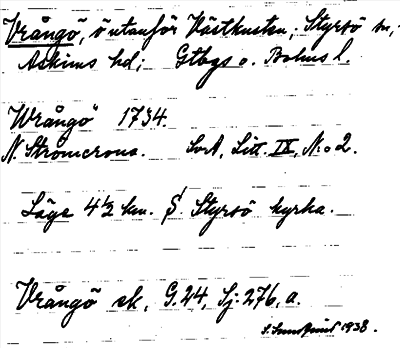 Vrångö, ö utanför Västkusten, Styrsö sn,
Askims hd; Gtbgs o. Bohus l.
Wrångö 1734.
N. Strömcrona. SvA, Litt. IX, N:o 2.
Läge 4 1/2 km. S. Styrsö kyrka.
Vrångö sk, G.24, Sj. 276, a.
1938.